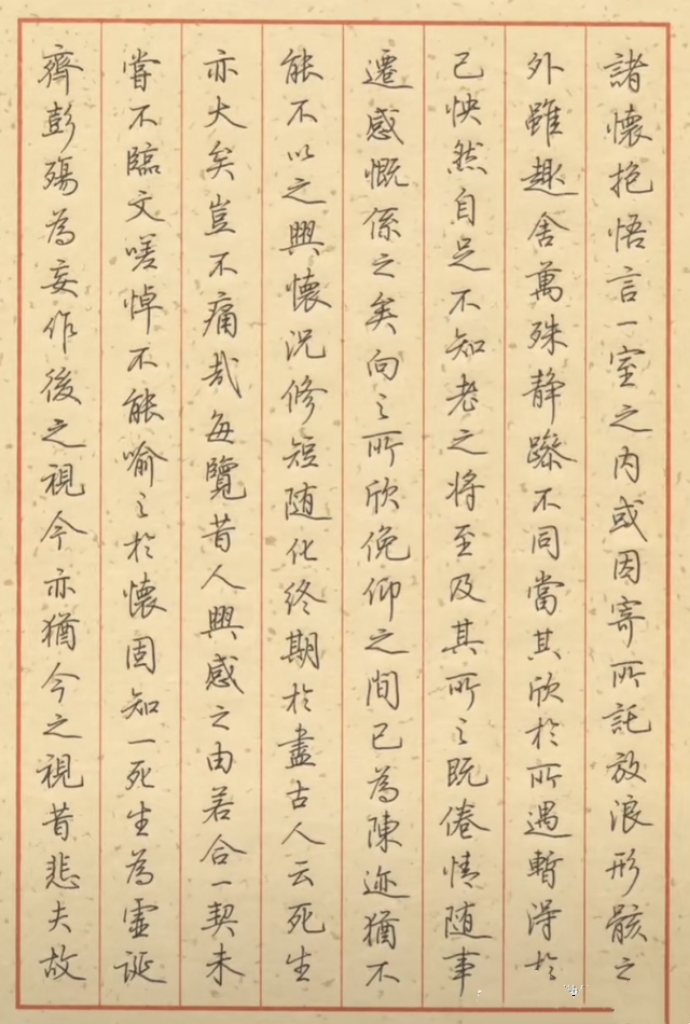 諸懷抱悟言一室之内或因寄所託放浪形骸之
外雖趣舍萬殊静躁不同當其欣於所遇暫得於
己怏然自足不知老之将至及其所之既倦情随事
遷感慨係之矣向之所欣俛仰之間已為陳迹猶不
能不以之興懷況修短随化終期於盡古人云死生
亦大矣豈不痛哉每覽昔人興感之由若合一契未
嘗不臨文嗟悼不能喻之於懷固知一死生為虛誕
齊彭殤為妄作後之視今亦猶今之視昔悲夫故